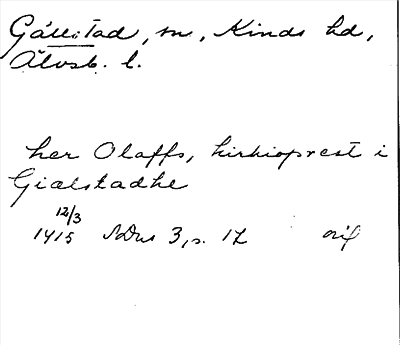 Gällstad, sn, Kinds hd,
Älvsb. l.
her Olaffs, kirkioprest i
Giælstadhe
12/3
1415 SDns 3, s. 12 orig